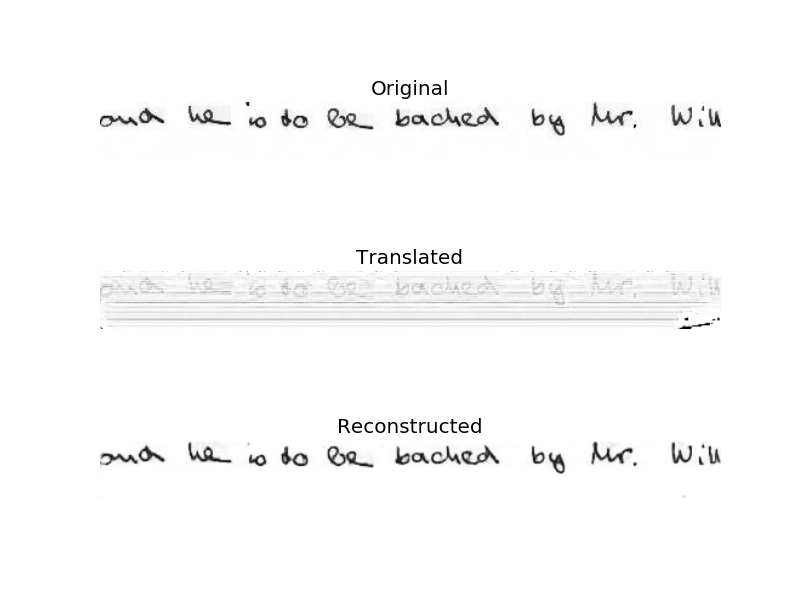 Original
and he is to be backed by Mr. Will
Translated
and he is to be backed by Mr. Will
Reconstructed
and he is to be backed by Mr. Will